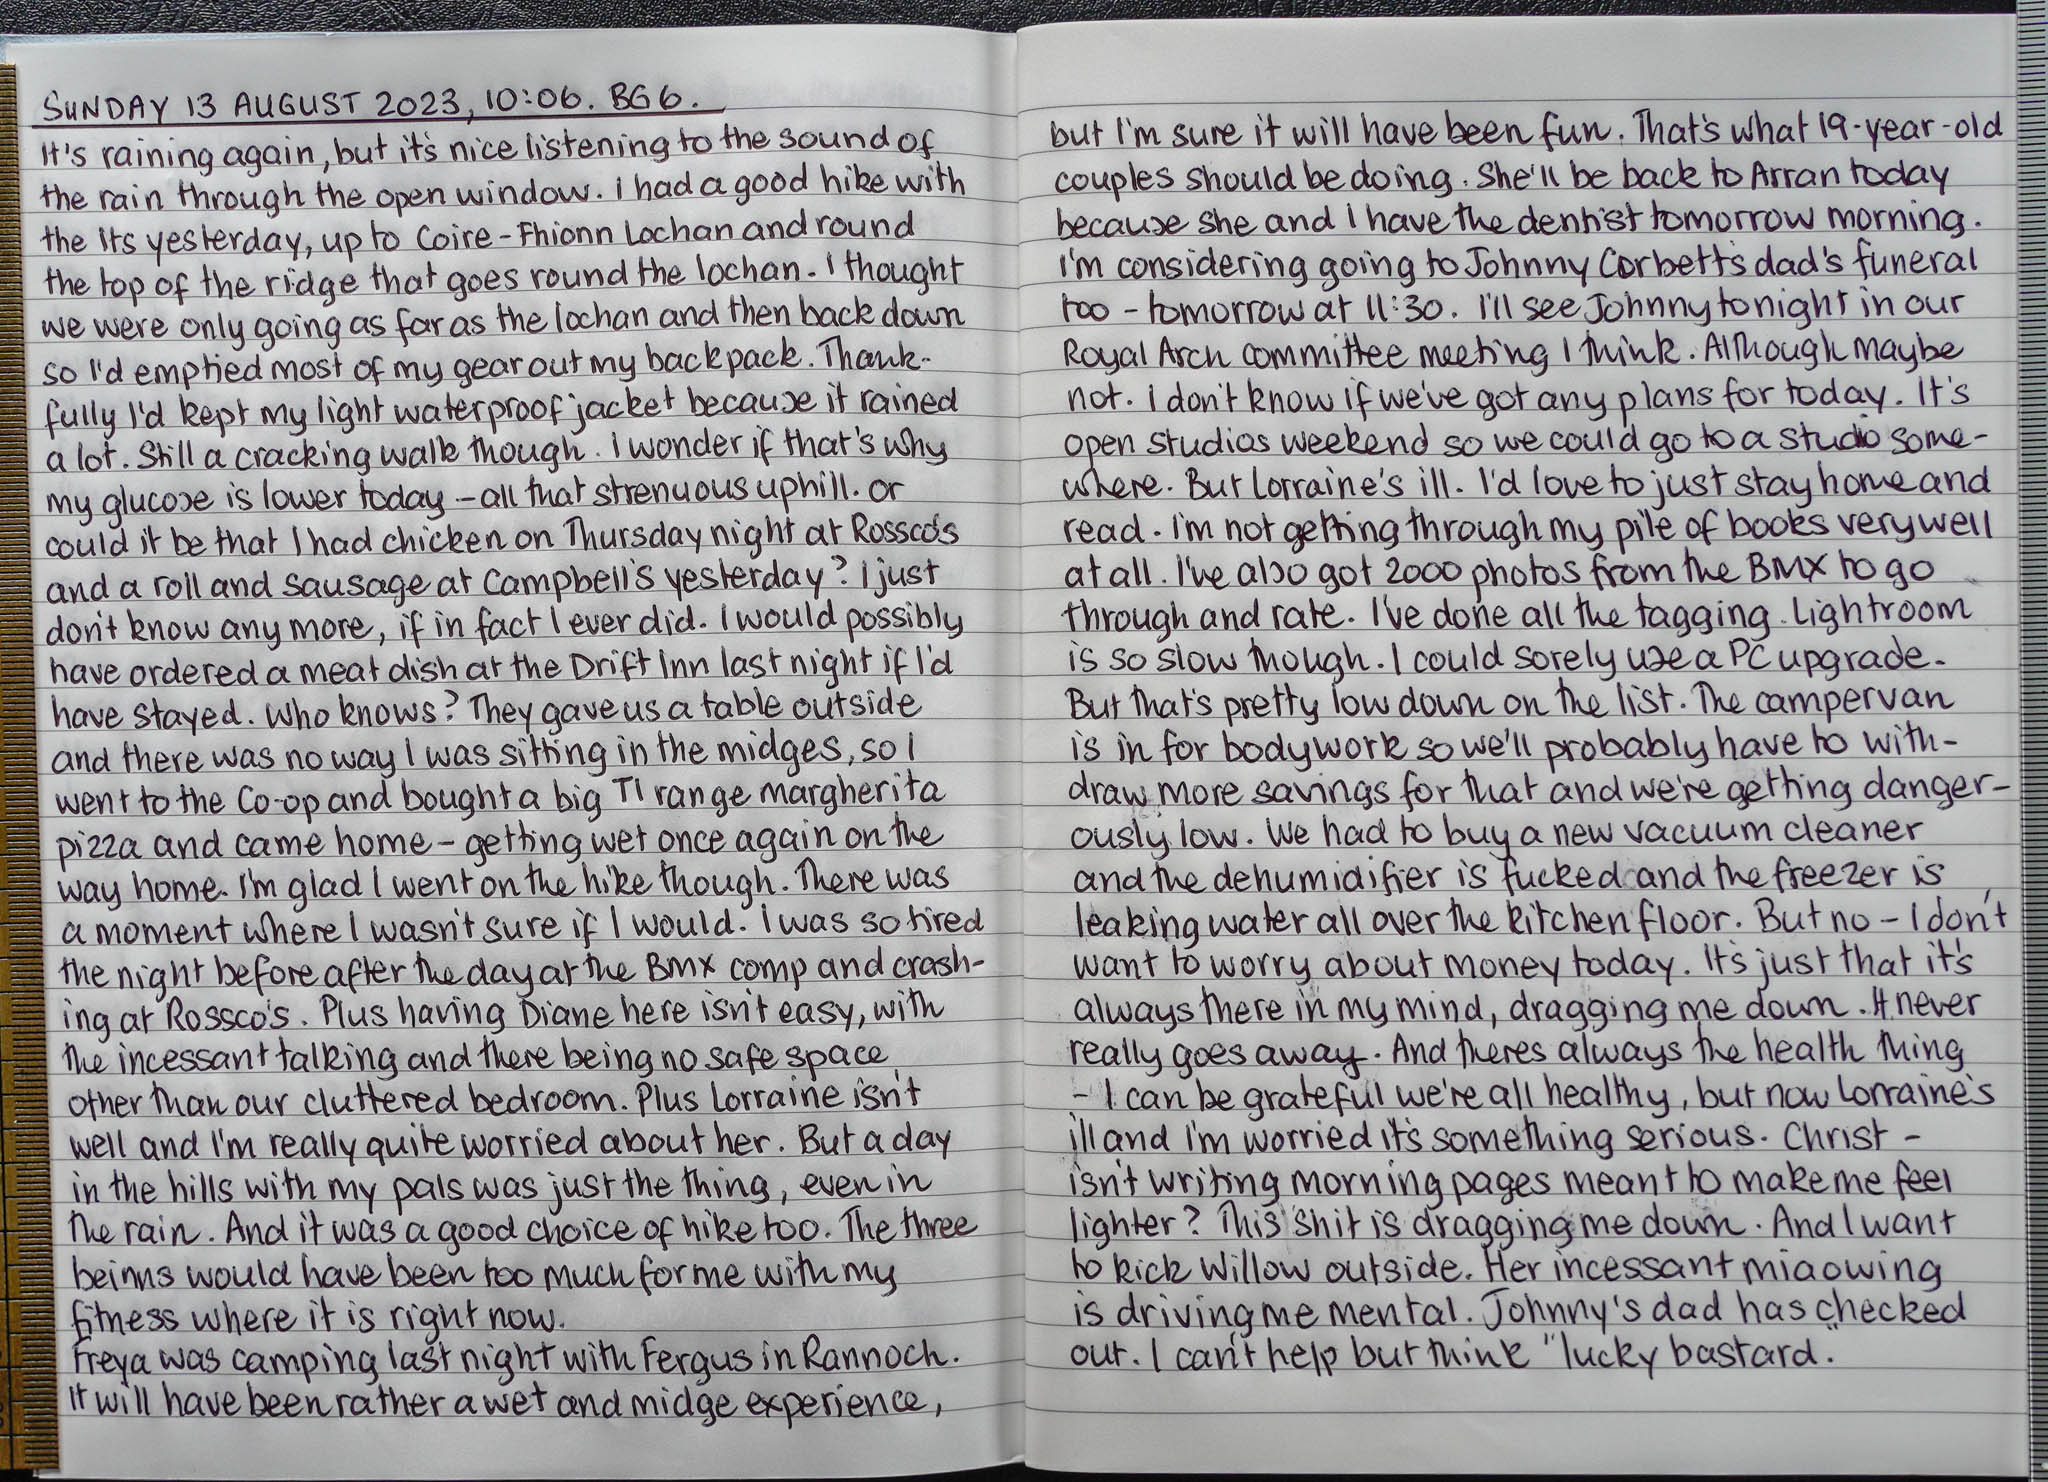 SUNDAY 13 AUGUST 2023, 10:06. BG 6.
It's raining again, but it's nice listening to the sound of
the rain through the open window. I had a good hike with
the 1ts yesterday, up to Coire-Fhionn Lochan and round
the top of the ridge that goes round the lochan. I thought
we were only going as far as the lochan and then back down
so I'd emptied most of my gear out my backpack. Thank-
fully I'd kept my light waterproof jacket because it rained
a lot. Still a cracking walk though. I wonder if that's why
my glucose is lower today – all that strenuous uphill. Or
could it be that I had chicken on Thursday night at Rossco's
and a roll and sausage at Campbell's yesterday? I just
don't know any more, if in fact I ever did. I would possibly
have ordered a meat dish at the Drift Inn last night if I'd
have stayed. Who knows? They gave us a table outside
and there was no way I was sitting in the midges, so I
went to the Co-op and bought a big TI range margherita
pizza and came home – getting wet once again on the
way home. I'm glad I went on the hike though. There was
a moment where I wasn't sure if I would. I was so tired
the night before after the day at the BMX comp and crash-
ing at Rossco's. Plus having Diane here isn't easy, with
the incessant talking and there being no safe space
other than our cluttered bedroom. Plus Lorraine isn't
well and I'm really quite worried about her. But a day
in the hills with my pals was just the thing, even in
the rain. And it was a good choice of hike too. The three
beinns would have been too much for me with my
fitness where it is right now.
Freya was camping last night with Fergus in Rannoch.
It will have been rather a wet and midge experience,
but I'm sure it will have been fun. That's what 19-year-old
couples should be doing. She'll be back to Arran today
because she and I have the dentist tomorrow morning.
I'm considering going to Johnny Corbett's dad's funeral
too – tomorrow at 11:30. I'll see Johnny tonight in our
Royal Arch committee meeting I think. Although maybe
not. I don't know if we've got any plans for today. It's
open studios weekend so we could go to a studio some-
where. But Lorraine's ill. I'd love to just stay home and
read. I'm not getting through my pile of books very well
at all. I've also got 2000 photos from the BMX to go
through and rate. I've done all the tagging. Lightroom
is so slow though. I could sorely use a PC upgrade.
But that's pretty low down on the list. The campervan
is in for bodywork so we'll probably have to with-
draw more savings for that and we're getting danger-
ously low. We had to buy a new vacuum cleaner
and the dehumidifier is fucked and the freezer is
leaking water all over the kitchen floor. But no – I don't
want to worry about money today. It's just that it's
always there in my mind, dragging me down. It never
really goes away. And theres always the health thing
– I can be grateful we're all healthy, but now Lorraine's
ill and I'm worried it's something serious. Christ –
isn't writing morning pages meant to make me feel
lighter? This shit is dragging me down. And I want
to kick Willow outside. Her incessant miaowing
is driving me mental. Johnny's dad has checked
out. I can't help but think "lucky bastard."